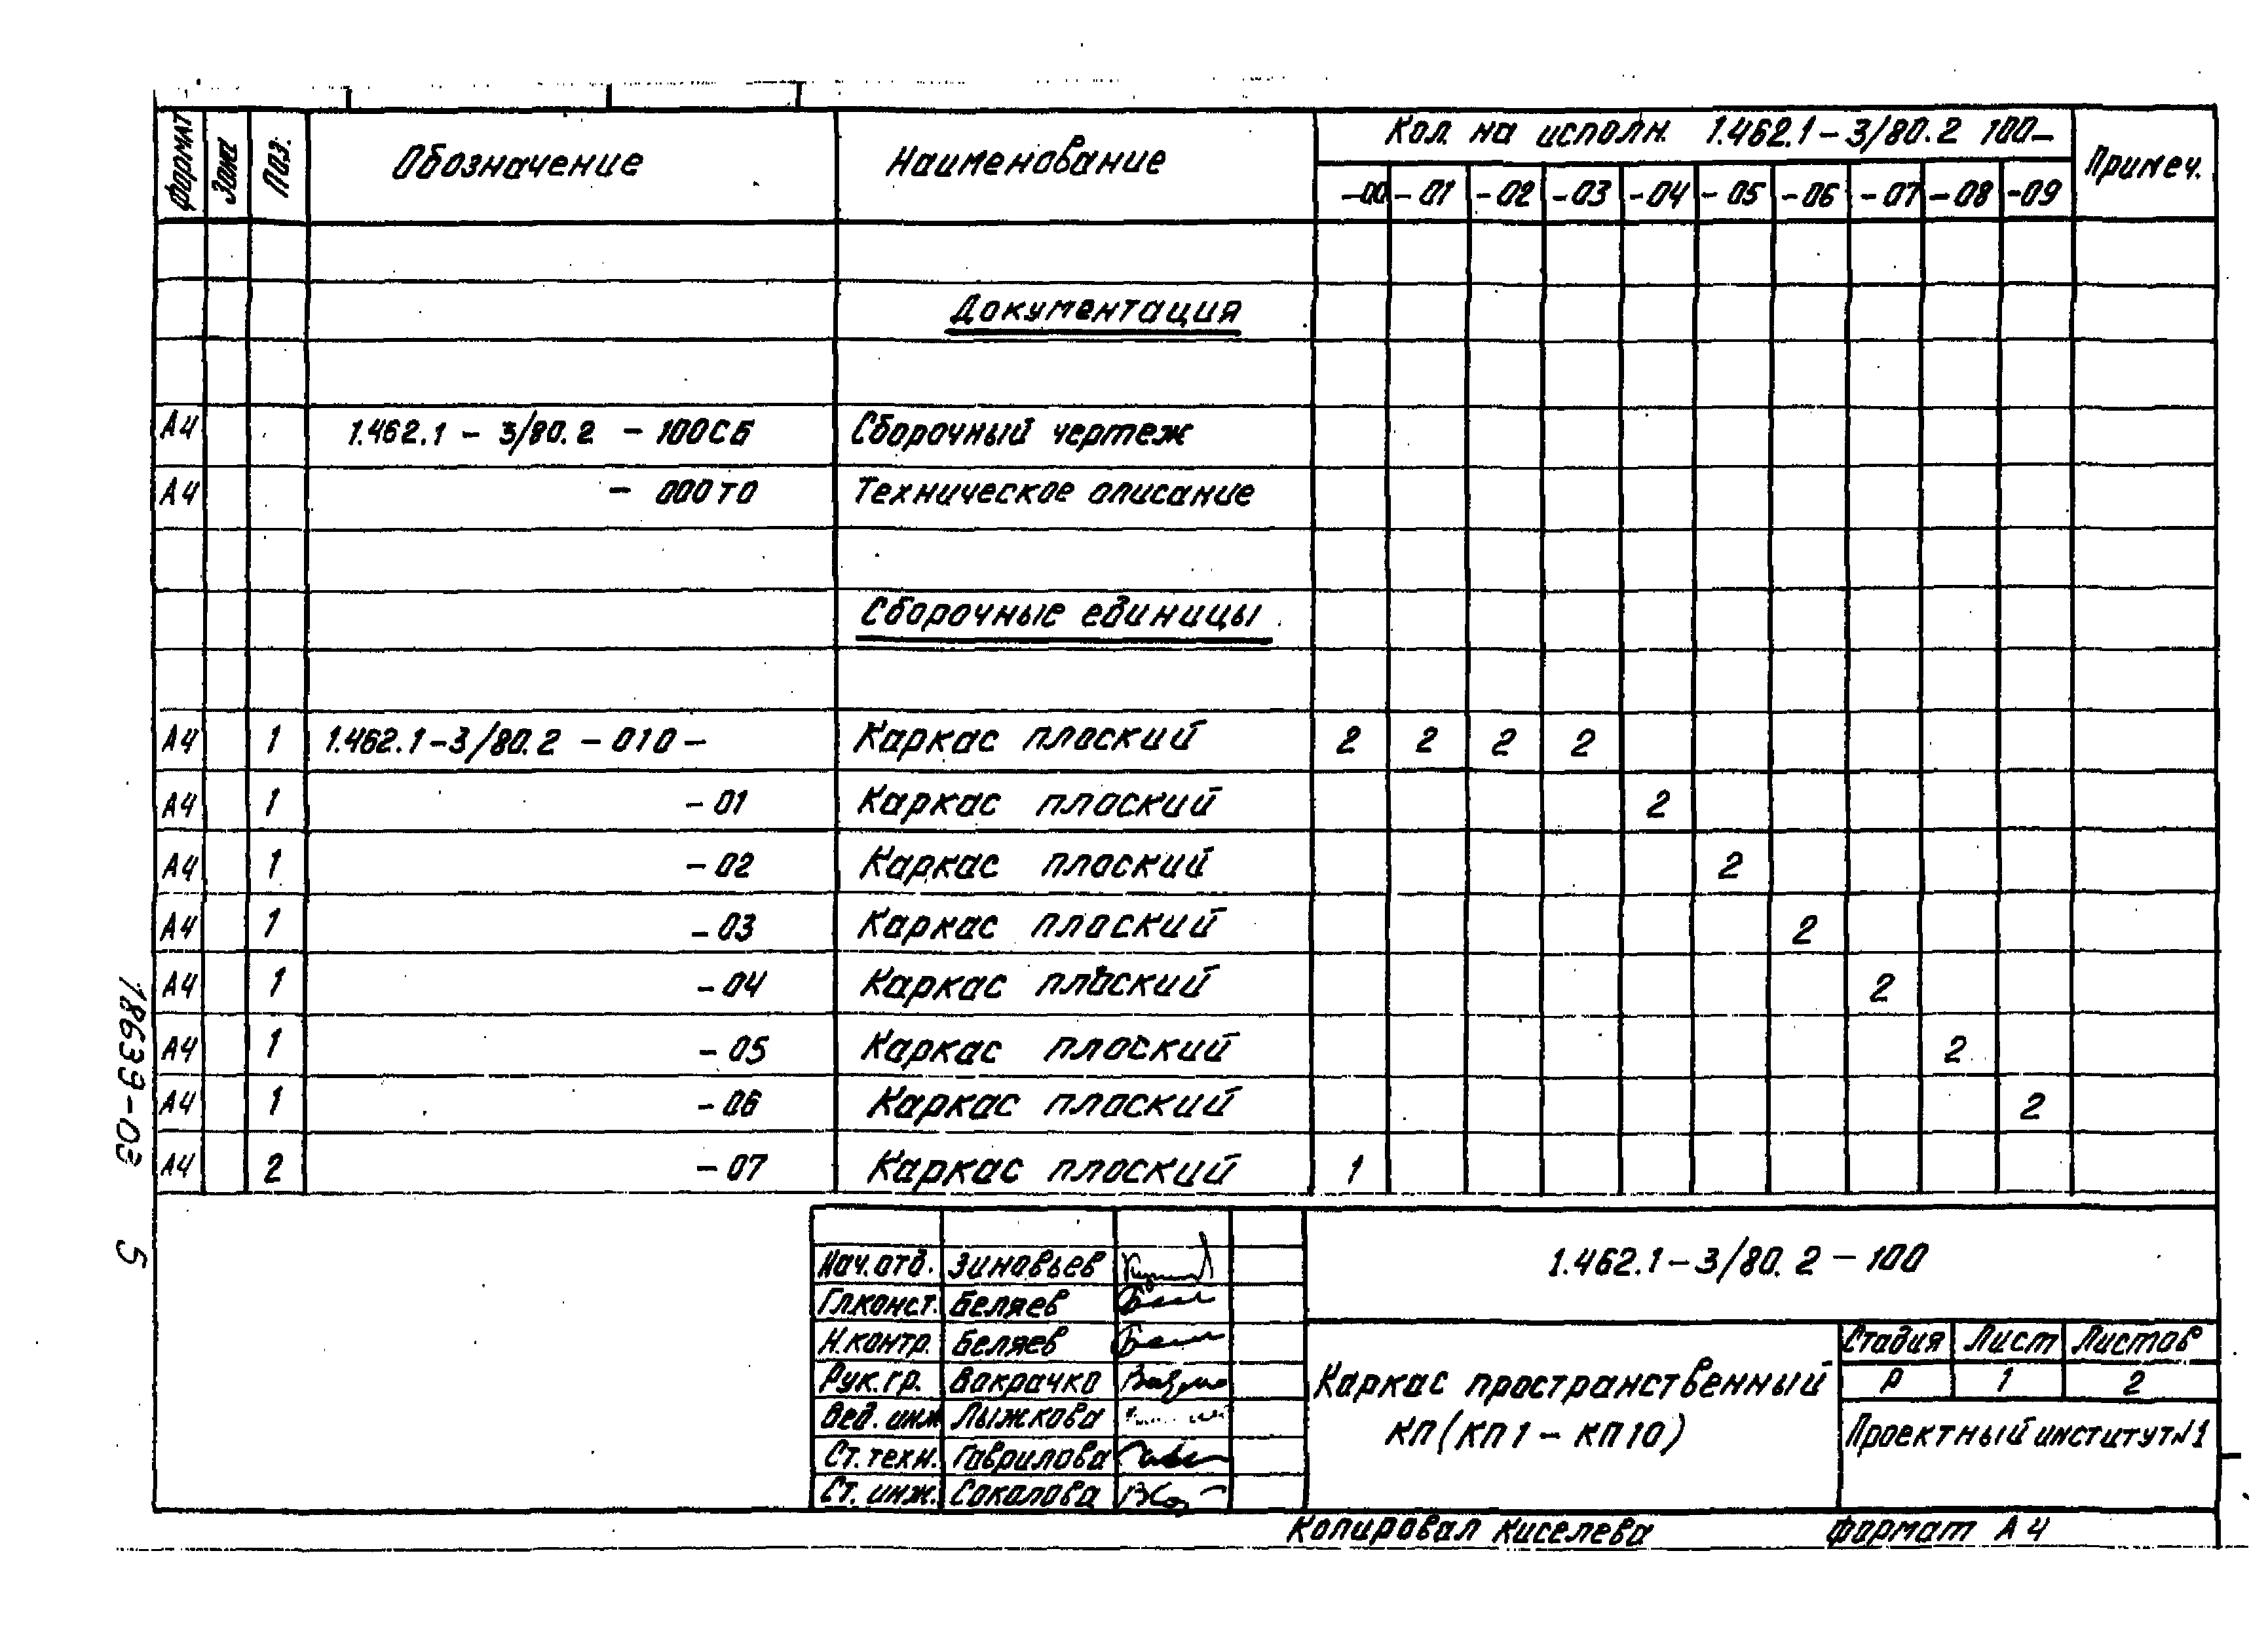 Формат Зона Поз. Обозначение Наименование Кол. на исполн. 1.462.1-3/80.2 100- Примеч.
-00 -01 -02 -03 -04 -05 -06 -07 -08 -09
Документация
А4 1.462.1-3/80.2 -100СБ Сборочный чертеж
А4 -000ТО Техническое описание
Сборочные единицы
А4 1 1.462.1-3/80.2 -010- Каркас плоский 2 2 2 2
А4 1 -01 Каркас плоский 2
А4 1 -02 Каркас плоский 2
А4 1 -03 Каркас плоский 2
А4 1 -04 Каркас плоский 2
А4 1 -05 Каркас плоский 2
А4 1 -06 Каркас плоский 2
А4 2 -07 Каркас плоский 1
18639-03 5
Нач.отд. Зиновьев
Гл.конст. Беляев
Н.контр. Беляев
Рук.гр. Вокрачко
Вед.инж Лыжкова
Ст.техн. Гаврилова
Ст.инж. Соколова
1.462.1-3/80.2-100
Каркас пространственный
КП(КП1-КП10)
Стадия Лист Листов
Р 1 2
Проектный институт №1
Копировал Киселева Формат А4